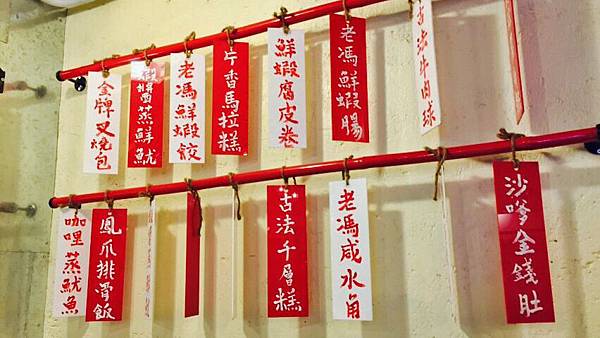 金牌叉燒包
老馮鮮蝦餃
片香馬拉糕
鮮蝦腐皮卷
老馮鮮蝦腸
古法牛肉球
咖哩蒸魷魚
鳳爪排骨飯
古法千層糕
老馮咸水角
沙嗲金錢肚